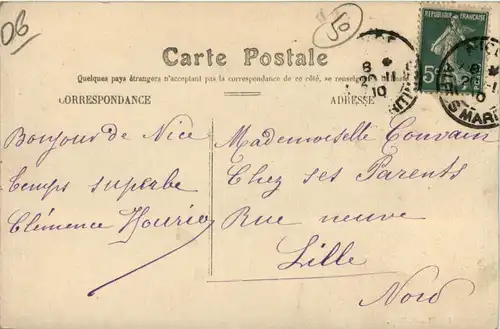 06
50
Carte Postale
Quelques pays étrangers n'acceptant pas la correspondance de ce côté, se renseigner
CORRESPONDANCE
ADRESSE
REPUBLIQUE FRANÇAISE
5
8
20 - 11
10
8
10
MARI
Bonjour de Nice
temps superbe
Clémence
Mademoiselle Couvain
Chez ses Parents
Rue neuve
Lille
Nord